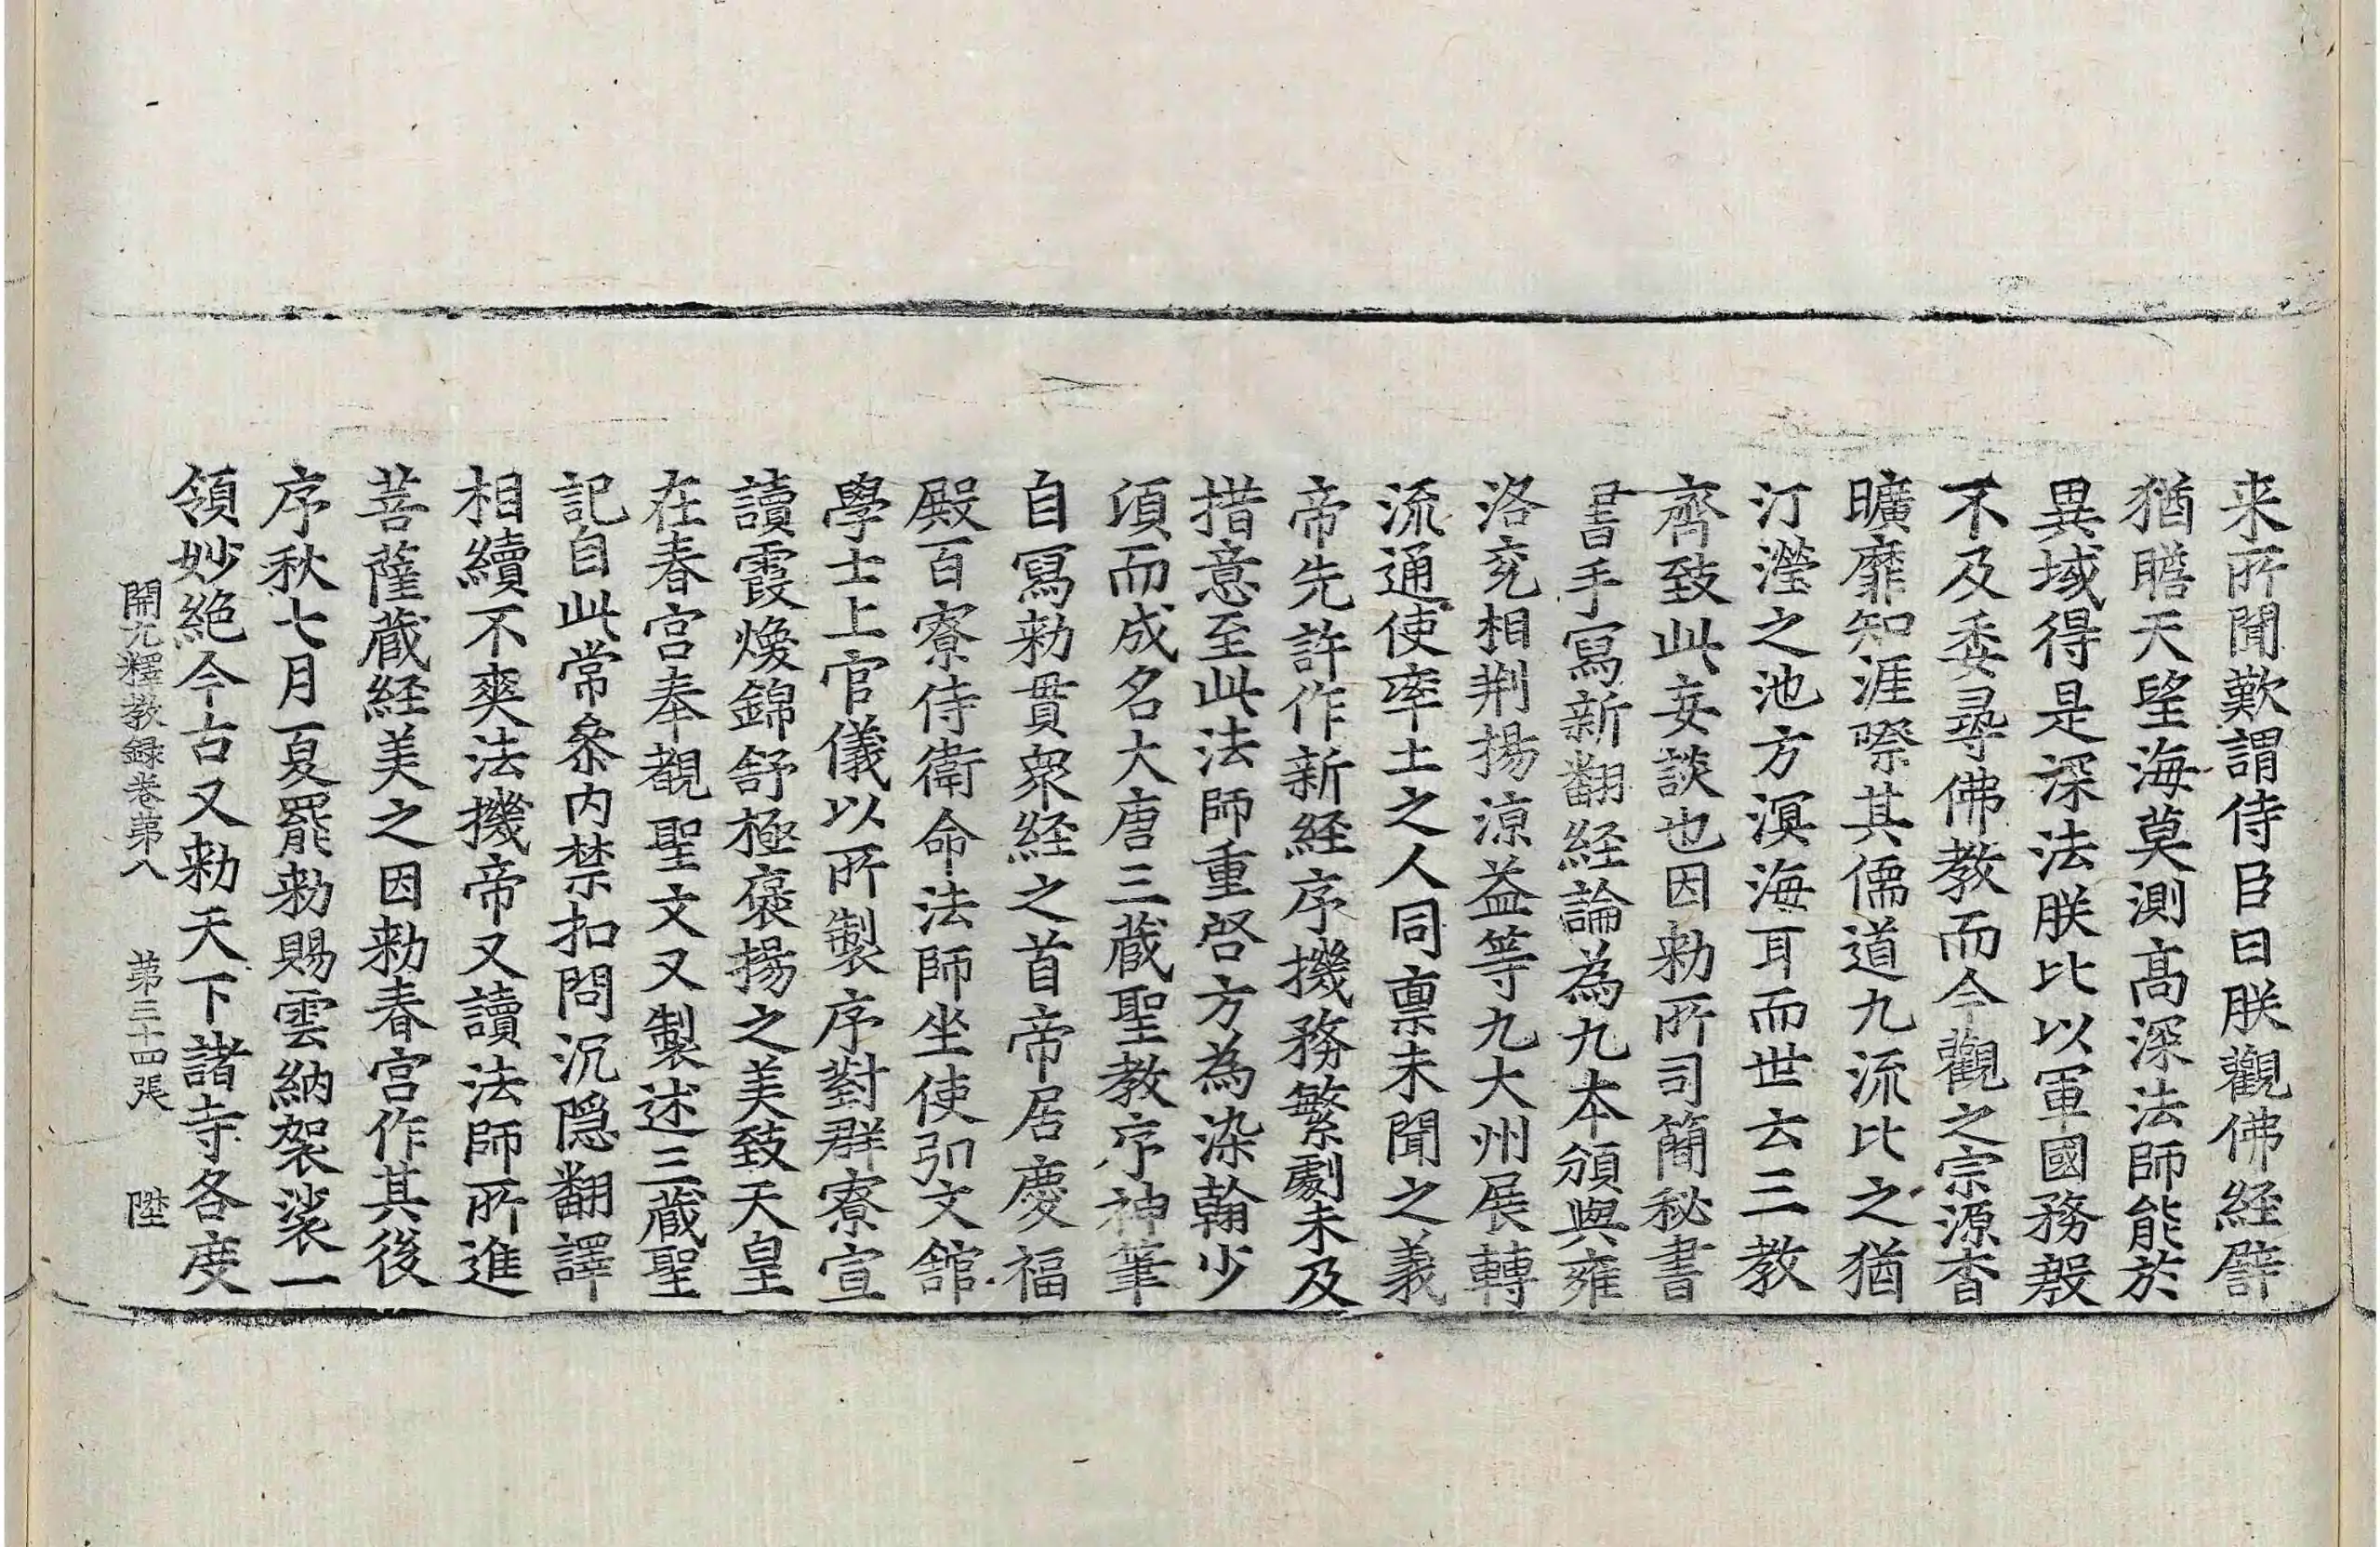 来所聞歎謂侍臣曰朕觀佛經譬
猶瞻天望海莫測髙深法師能於
異域得是深法朕比以軍國務殷
不及委尋佛教而今觀之宗源杳
曠靡知涯際其儒道九流比之猶
汀瀅之池方溟海耳而世云三教
齊致此妄談也因勑所司簡秘書
書手寫新翻經論為九本頒與雍
洛兖相荆揚涼益等九大州展轉
流通使率土之人同禀未聞之義
帝先許作新經序機務繁劇未及
措意至此法師重啓方為染翰少
頃而成名大唐三藏聖教序神筆
自寫勑貫衆經之首帝居慶福
殿百寮侍衛命法師坐使弘文館
學士上官儀以所製序對群寮宣
讀霞煥錦舒極褒揚之美致天皇
在春宮奉觀聖文又製述三藏聖
記自此常叅内禁扣問沉隱翻譯
相續不爽法機帝又讀法師所進
菩薩藏經美之因勑春宮作其後
序秋七月夏罷勑賜雲納袈裟一
領妙絶今古又勑天下諸寺各度
開元釋教録卷第八　第三十四張　陞